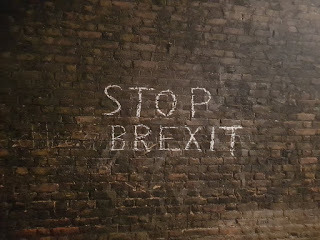 STOP
BREXIT